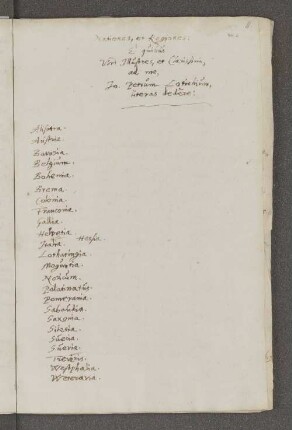 Nationes, et Regiones,
E quibus
Viri Illustres, et Clarissimi,
ad me,
Jo. Petrum Lotichium,
literas dedêre:
Alsatia.
Austria.
Bavaria.
Belgium.
Bohemia.
Brema.
Colonia.
Franconia.
Gallia.
Helvetia.
Hassia.
Italia.
Lotharingia.
Moguntia.
Noricum.
Palatinatus.
Pomerania.
Sabaudia.
Saxonia.
Silesia.
Suecia.
Suevia.
Treviris.
Westphalia.
Weteravia.